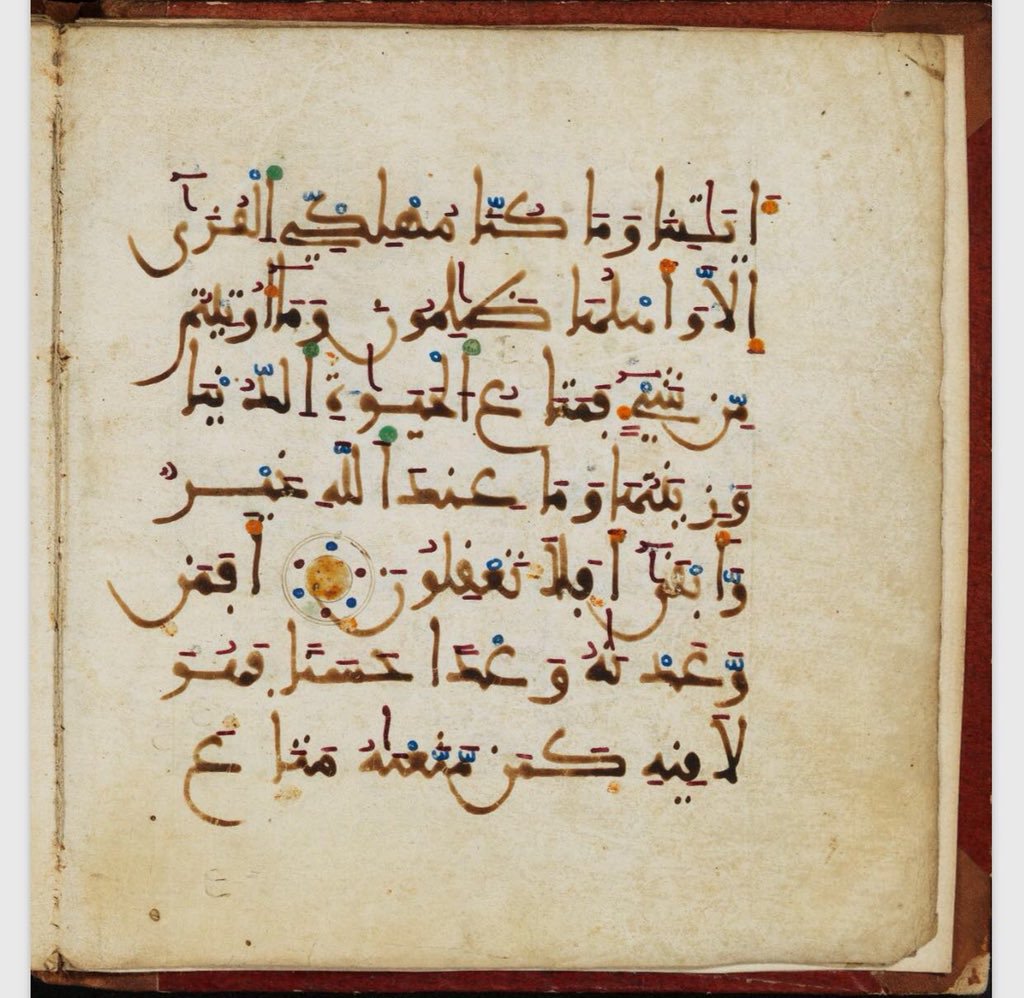 ءَايَٰتِنَا وَمَا كُنَّا مُهْلِكِي الْقُرَىٰ
إِلَّا وَأَهْلُهَا ظَٰلِمُونَ وَمَا أُوتِيتُم
مِّن شَيْءٍ فَمَتَاعُ الْحَيَوٰةِ الدُّنْيَا
وَزِينَتُهَا وَمَا عِندَ اللَّهِ خَيْرٌ
وَأَبْقَىٰ أَفَلَا تَعْقِلُونَ أَفَمَن
وَعَدْنَٰهُ وَعْدًا حَسَنًا فَهُوَ
لَاقِيهِ كَمَن مَّتَّعْنَٰهُ مَتَاعَ